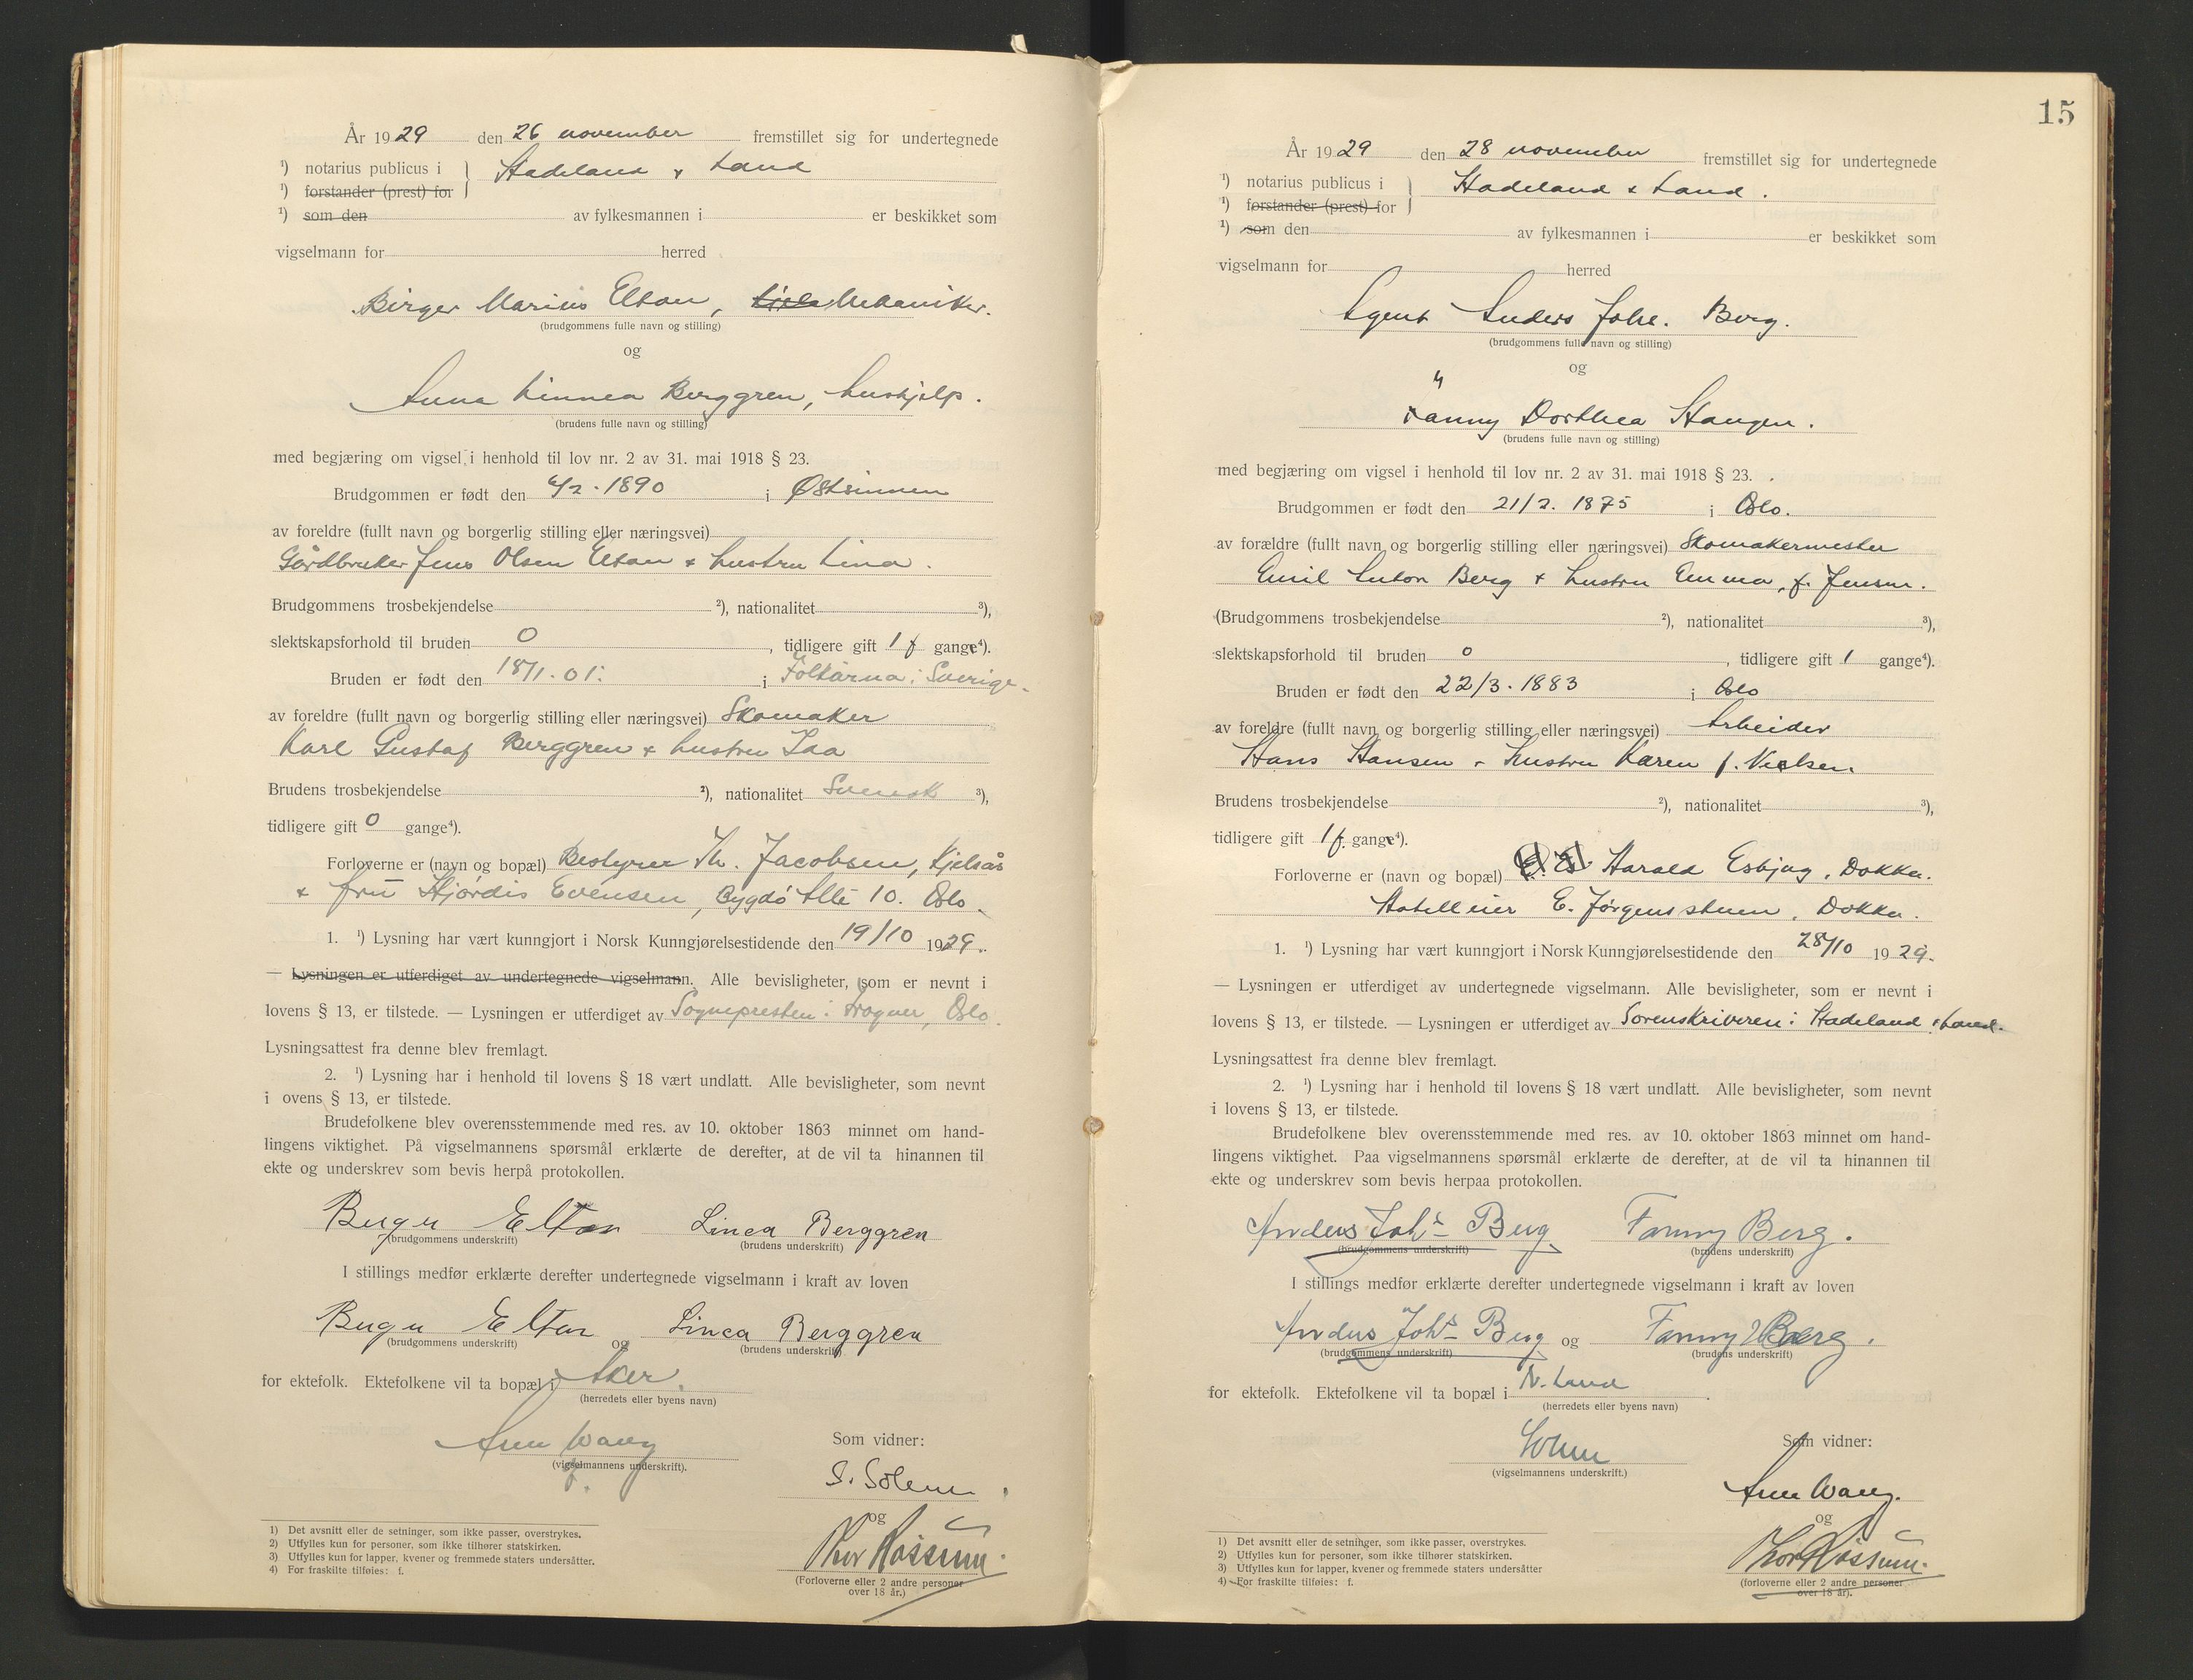 År 1929 den 26 november fremstillet sig for undertegnede
¹) notarius publicus i } Hadeland & Land
¹) forstander (prest) for
¹) som den av fylkesmannen i er beskikket som
vigselmann for herred
Birger Marius Elton, Mekaniker.
(brudgommens fulle navn og stilling)
og
Anna Linnea Berggren, hushjelp.
(brudens fulle navn og stilling)
med begjæring om vigsel i henhold til lov nr. 2 av 31. mai 1918 § 23.
Brudgommen er født den 6/2. 1890 i Østsinnen
av foreldre (fullt navn og borgerlig stilling eller næringsvei)
Gårdbruker Jens Olsen Elton & hustru Lina.
Brudgommens trosbekjendelse ²), nationalitet ³),
slektskapsforhold til bruden 0, tidligere gift 1 f gange⁴).
Bruden er født den 18/1. 01. i Folkärna i Sverige.
av foreldre (fullt navn og borgerlig stilling eller næringsvei) Skomaker
Karl Gustaf Berggren & hustru Ida
Brudens trosbekjendelse ²), nationalitet Svensk ³),
tidligere gift 0 gange⁴).
Forloverne er (navn og bopæl) Bestyrer Th. Jacobsen, Kjelsås
& fru Hjørdis Evensen, Bygdø Allé 10. Oslo.
1. ¹) Lysning har vært kunngjort i Norsk Kunngjørelsestidende den 19/10 1929.
— Lysningen er utferdiget av undertegnede vigselmann. Alle bevisligheter, som er nevnt i
lovens § 13, er tilstede. — Lysningen er utferdiget av Sognepresten i Frogner, Oslo.
Lysningsattest fra denne blev fremlagt.
2. ¹) Lysning har i henhold til lovens § 18 vært undlatt. Alle bevisligheter, som nevnt
i ovens § 13, er tilstede.
Brudefolkene blev overensstemmende med res. av 10. oktober 1863 minnet om hand-
lingens viktighet. På vigselmannens spørsmål erklærte de derefter, at de vil ta hinannen til
ekte og underskrev som bevis herpå protokollen.
Birger Elton Linea Berggren
(brudgommens underskrift) (brudens underskrift)
I stillings medfør erklærte derefter undertegnede vigselmann i kraft av loven
Birger Elton og Linea Berggren
(brudgommens underskrift) (brudens underskrift)
for ektefolk. Ektefolkene vil ta bopæl i Aker.
(herredets eller byens navn)
Arne Wang
(vigselmannens underskrift).
f.
Som vidner:
S. Solem
og
Thor Røssum.
(Forloverne eller 2 andre personer
over 18 år.)
1) Det avsnitt eller de setninger, som ikke passer, overstrykes.
2) Utfylles kun for personer, som ikke tilhører statskirken.
3) Utfylles kun for lapper, kvener og fremmede staters undersåtter.
4) For fraskilte tilføies: f.
15
År 1929 den 28 november fremstillet sig for undertegnede
¹) notarius publicus i } Hadeland & Land.
¹) forstander (prest) for
¹) som den av fylkesmannen i er beskikket som
vigselmann for herred
Agent Anders Johs. Berg.
(brudgommens fulle navn og stilling)
og
Fanny Dorthea Haugen.
(brudens fulle navn og stilling)
med begjæring om vigsel i henhold til lov nr. 2 av 31. mai 1918 § 23.
Brudgommen er født den 21/2. 1875 i Oslo.
av forældre (fullt navn og borgerlig stilling eller næringsvei) Skomakermester
Emil Anton Berg & hustru Emma, f. Jensen.
(Brudgommens trosbekjendelse ²), nationalitet ³),
slektskapsforhold til bruden 0, tidligere gift 1 gange⁴).
Bruden er født den 22/3. 1883 i Oslo
av foreldre (fullt navn og borgerlig stilling eller næringsvei) Arbeider
Hans Hansen & hustru Karen f. Nielsen
Brudens trosbekjendelse ²), nationalitet ³),
tidligere gift 1 f. gange⁴).
Forloverne er (navn og bopæl) Harald Esbjug, Dokka.
Hotelleier E. Jørgensstuen, Dokka.
1. ¹) Lysning har vært kunngjort i Norsk Kunngjørelsestidende den 28/10 1929.
— Lysningen er utferdiget av undertegnede vigselmann. Alle bevisligheter, som er nevnt i
lovens § 13, er tilstede. — Lysningen er utferdiget av Sorenskriveren i Hadeland & Land.
Lysningsattest fra denne blev fremlagt.
2. ¹) Lysning har i henhold til lovens § 18 vært undlatt. Alle bevisligheter, som nevnt
i lovens § 13, er tilstede.
Brudefolkene blev overensstemmende med res. av 10. oktober 1863 minnet om hand-
lingens viktighet. Paa vigselmannens spørsmål erklærte de derefter, at de vil ta hinannen til
ekte og underskrev som bevis herpaa protokollen.
Anders Johs Berg Fanny Berg.
(brudgommens underskrift) (brudens underskrift)
I stillings medfør erklærte derefter undertegnede vigselmann i kraft av loven
Anders Johs Berg og Fanny Berg.
(brudgommens underskrift) (brudens underskrift)
for ektefolk. Ektefolkene vil ta bopæl i N. Land.
(herredets eller byens navn)
(vigselmannens underskrift.)
Som vidner:
Arne Wang.
og
Thor Røssum.
(forloverne eller 2 andre personer
over 18 år).
1) Det avsnitt eller de setninger, som ikke passer, overstrykes.
2) Utfylles kun for personer, som ikke tilhører statskirken.
3) Utfylles kun for lapper, kvener og fremmede staters undersåtter
4) For fraskilte tilføies: f.